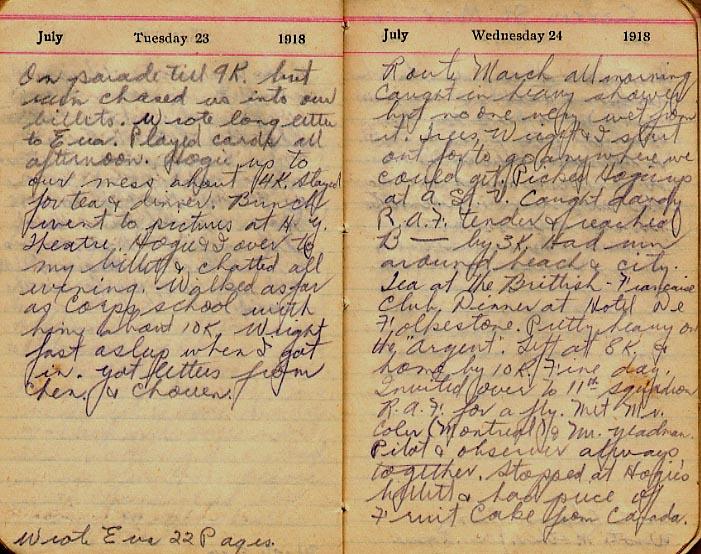 July Tuesday 23 1918
On parade till 9K. but
rain chased us into our
billets. Wrote long letter
to Eva. Played cards all
afternoon. Hogie up to
our mess about 4K. Stayed
for tea & dinner. Bunch
went to pictures at H. Y.
Theatre. Hogie & I over to
my billet & chatted all
evening. Walked as far
as Corps school with
him about 10K. Wright
fast asleep when I got
in. Got letters from
Chen. &
Wrote Eva 22 Pages.
July Wednesday 24 1918
Route March all morning
Caught in heavy shower
but no one very wet from
it. Trees, Wright & I start
out for to go anywhere we
could get. Picked Hogie up
at A. Caught dandy
R.A.F. tender & reached
B— by 3K. Had run
around beach & city.
Tea at the Brittish-Francaise
Club. Dinner at Hotel De
Folkestone. Pretty heavy on
the "argent". Left at 8K. &
home by 10K. Fine day.
Invited over to 11th squadron
R.A.F. for a fly. Met Mr.
Coler (Montreal) & Mr. Yeadman.
Pilot & observer always
together. Stopped at Hogie's
billet & had piece of
Fruit Cake from Canada.